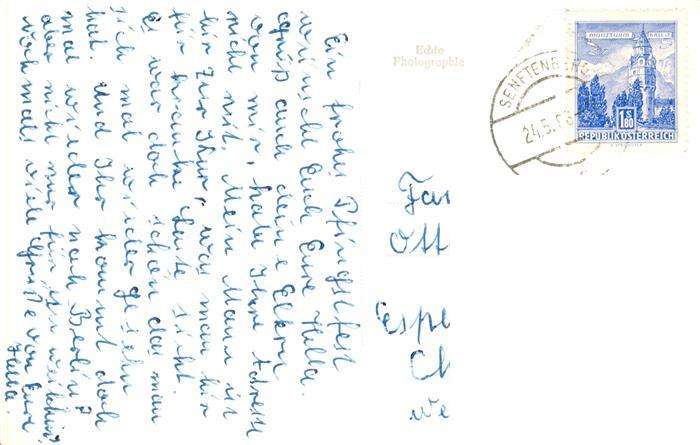 Ein frohes Pfingstfest
wünscht Euch Eure Hella.
grüß auch deine Eltern
von mir, habe Ihre Adresse
nicht mit. Mein Mann ist
hir zur Khur, was man hir
für kranke Leute sieht.
Es war doch schön das man
sich mal wieder gesehn
hat. Und Ihr kommt doch
mal wieder nach Berlin?
aber nicht nur für ein
Nochmals viele Grüße von Eure
Hella.
Echte
Photographie
SENFTENBERG
24.5.
MÜNZTURM HALL
S 1.80
REPUBLIK ÖSTERREICH
Ott
Espe
Ch
we